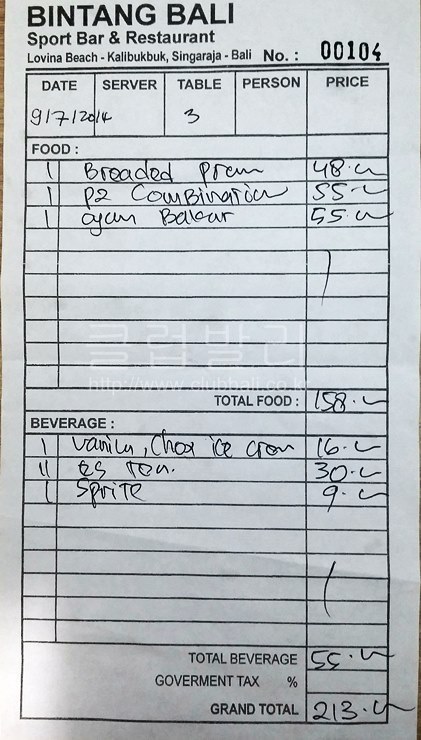 BINTANG BALI
Sport Bar & Restaurant
Lovina Beach - Kalibukbuk, Singaraja - Bali No. : 00104
DATE SERVER TABLE PERSON PRICE
9/7/2014 3
FOOD :
1 Breaded Pran 48.-
1 P2 Combination 55.-
1 ayam Bakar 55.-
클럽발리
http://www.clubbali.co.kr
TOTAL FOOD : 158.-
BEVERAGE :
1 Vanila, Choc ice cream 16.-
11 es tea. 30.-
1 Sprite 9.-
TOTAL BEVERAGE 55.-
GOVERMENT TAX %
GRAND TOTAL 213.-